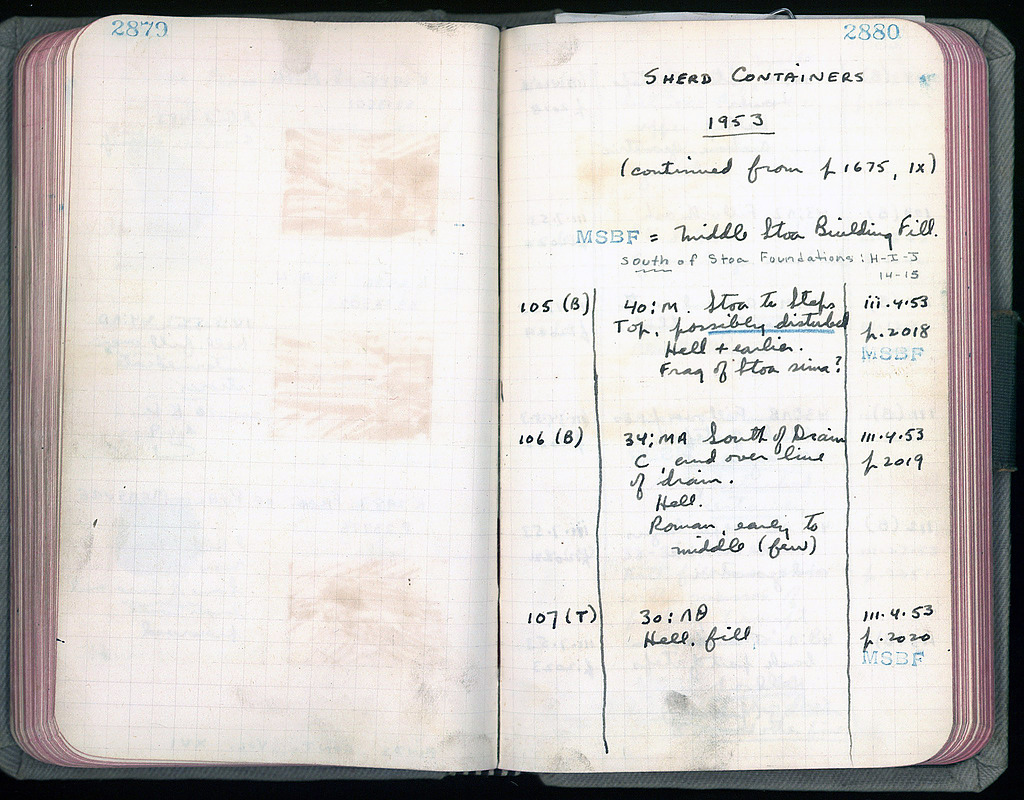 2879
2880
SHERD CONTAINERS
1953
(continued from p 1675, IX)
MSBF = Middle Stoa Building Fill.
South of Stoa Foundations: H-I-J
14-15
105 (B) 40:M. Stoa to Steps iii.4.53
Top, possibly disturbed p.2018
Hell + earlier. MSBF
Frag of Stoa sima?
106 (B) 34:MA South of Drain iii.4.53
C, and over line p.2019
of drain.
Hell.
Roman, early to
middle (few)
107 (T) 30:ΛΘ iii.4.53
Hell. fill p.2020
MSBF